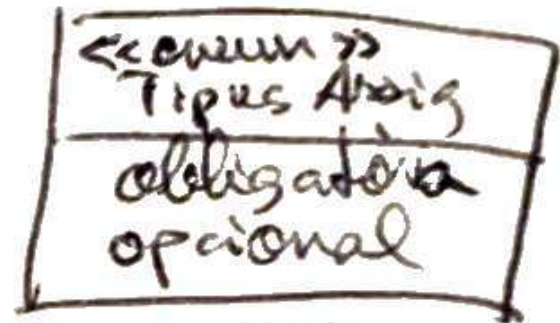 <<enum>>
Tipus Assig
obligatòria
opcional